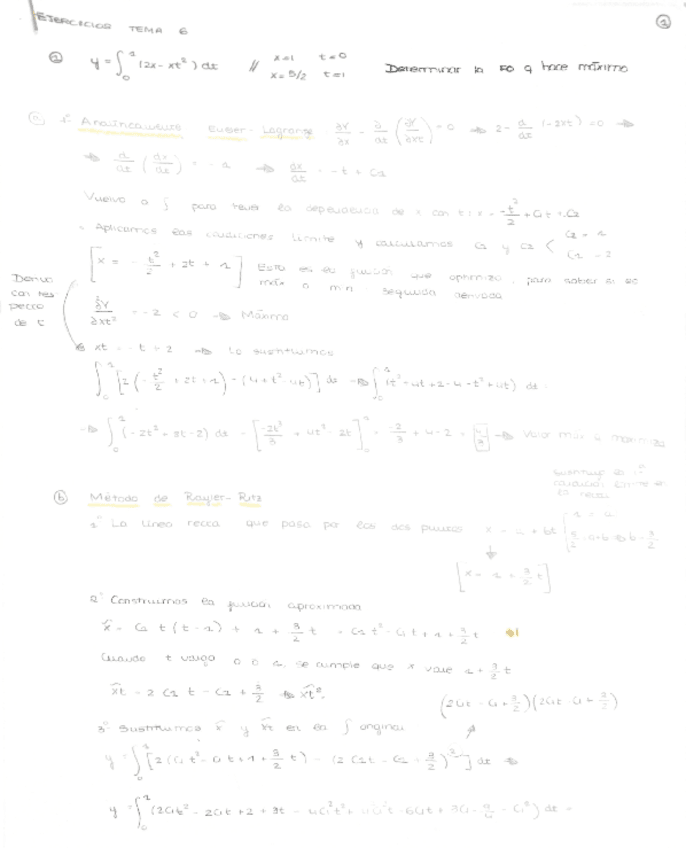 EJERCICIOS TEMA 6
①
① y = ∫₀¹ (2x - xt²) dt // x=1 t=0
x=5/2 t=1
Determinar la FO q hace máximo
ⓐ 1º Analíticamente Euler-Lagrange ∂Y/∂x - ∂/∂t (∂Y/∂xt) = 0 ⇒ 2 - d/dt (-2xt) = 0 ⇒
⇒ d/dt (dx/dt) = -1 ⇒ dx/dt = -t + C1
Vuelvo a ∫ para tener la dependencia de x con t: x = -t²/2 + C1t + C2
Aplicamos las condiciones límite y calculamos C1 y C2 < C2 = 1
C1 = 2
[x = -t²/2 + 2t + 1] Esta es la función que optimiza, para saber si es
máx o min segunda derivada
Derivo
con res
pecto
de t
∂²Y/∂xt² = -2 < 0 ⇒ Máximo
xt = -t + 2 ⇒ Lo sustituimos
∫₀¹ [2(-t²/2 + 2t + 1) - (4 + t² - 4t)] dt ⇒ ∫₀¹ (-t² + 4t + 2 - 4 - t² + 4t) dt =
⇒ ∫₀¹ (-2t² + 8t - 2) dt = [-2t³/3 + 4t² - 2t]₀¹ = -2/3 + 4 - 2 = 4/3 ⇒ Valor máx q maximiza
ⓑ Método de Rayler-Ritz
sustituyo la
condición límite en
la recta
1º La línea recta que pasa por los dos puntos x = a + bt { 1 = a
5/2 = a+b ⇒ b = 3/2
[x = 1 + 3/2 t]
2º Construimos la función aproximada
x̂ = C1 t (t - 1) + 1 + 3/2 t = C1t² - C1t + 1 + 3/2 t
Cuando t valga 0 o 1, se cumple que x vale 1 + 3/2 t
x̂t = 2C1t - C1 + 3/2 ⇒ x̂t².
(2C1t - C1 + 3/2)(2C1t - C1 + 3/2)
3º Sustituimos x̂ y x̂t en la ∫ original
y = ∫₀¹ [2(C1t² - C1t + 1 + 3/2 t) - (2C1t - C1 + 3/2)²] dt ⇒
y = ∫₀¹ (2C1t² - 2C1t + 2 + 3t - 4C1²t² + 4C1²t - 6C1t + 3C1 - 9/4 - C1²) dt =